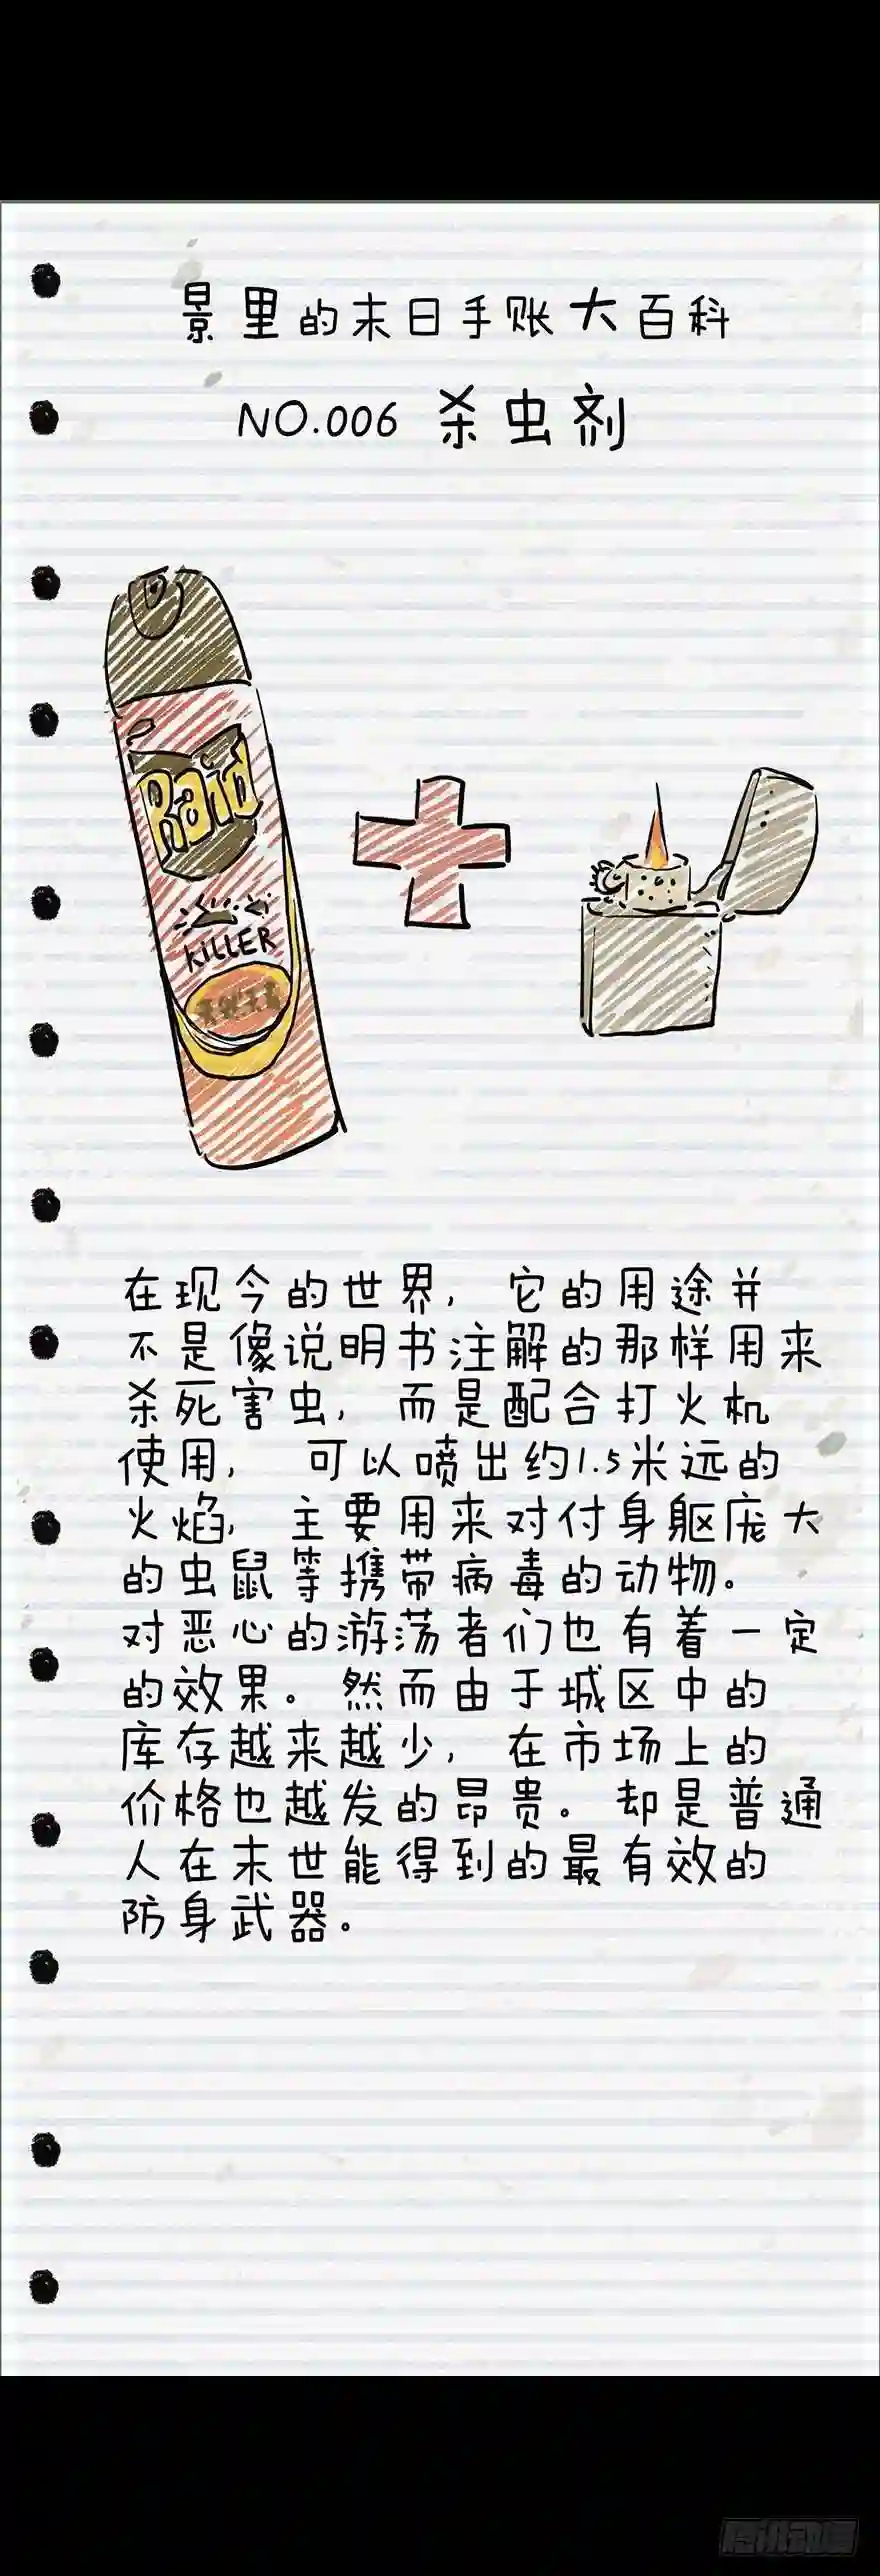 景里的末日手账大百科
NO.006 杀虫剂
Raid
KILLER
在现今的世界，它的用途并
不是像说明书注解的那样用来
杀死害虫，而是配合打火机
使用，可以喷出约1.5米远的
火焰，主要用来对付身躯庞大
的虫鼠等携带病毒的动物。
对恶心的游荡者们也有着一定
的效果。然而由于城区中的
库存越来越少，在市场上的
价格也越发的昂贵。却是普通
人在末世能得到的最有效的
防身武器。
腾讯动漫